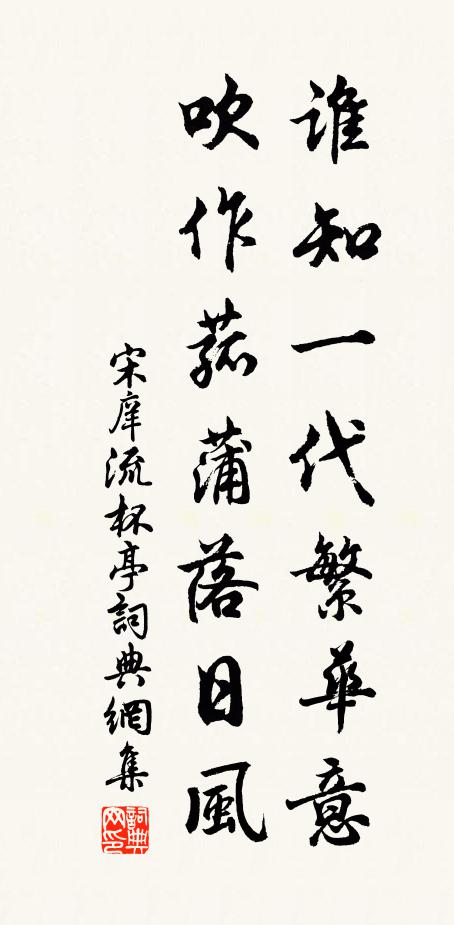 誰知一代繁華意
吹作菰蒲落日風
宋庠流杯亭詞典網集
詞典網印